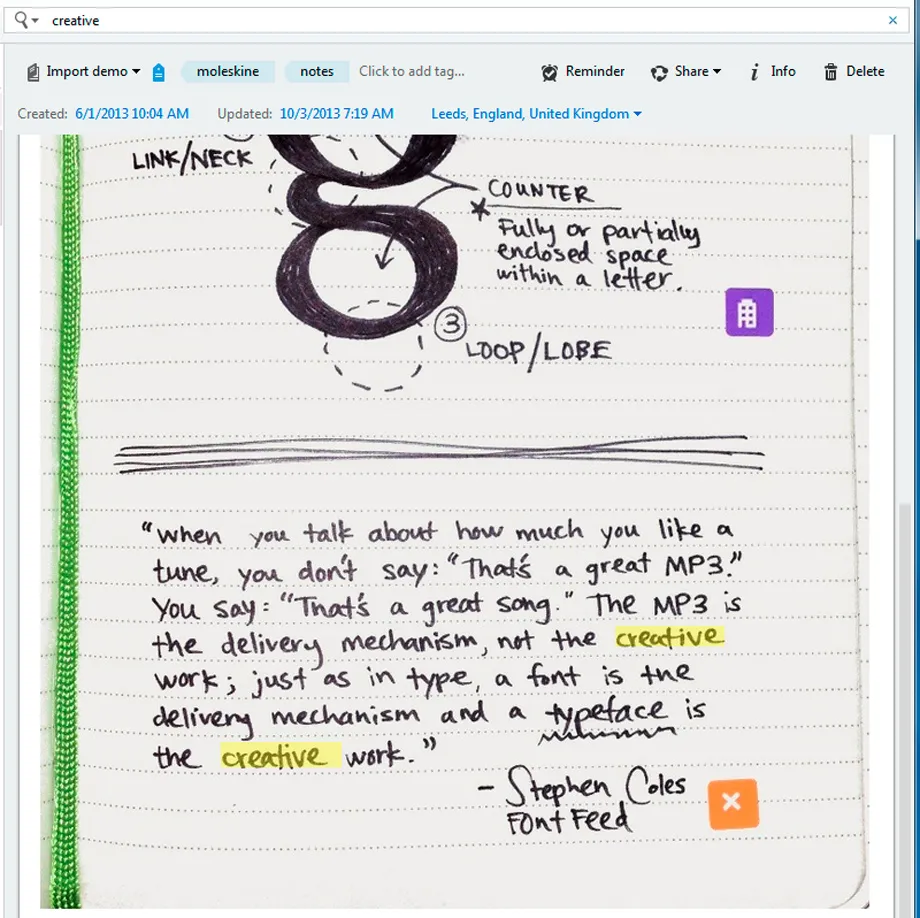 creative
Import demo
moleskine
notes
Click to add tag...
Reminder
Share
Info
Delete
Created: 6/1/2013 10:04 AM
Updated: 10/3/2013 7:19 AM
Leeds, England, United Kingdom
LINK/NECK
COUNTER
Fully or partially
enclosed space
within a letter.
3
LOOP/LOBE
"When you talk about how much you like a
tune, you don't say: "That's a great MP3."
You say: "That's a great song." The MP3 is
the delivery mechanism, not the creative
work; just as in type, a font is the
delivery mechanism and a typeface is
the creative work."
- Stephen Coles
FontFeed